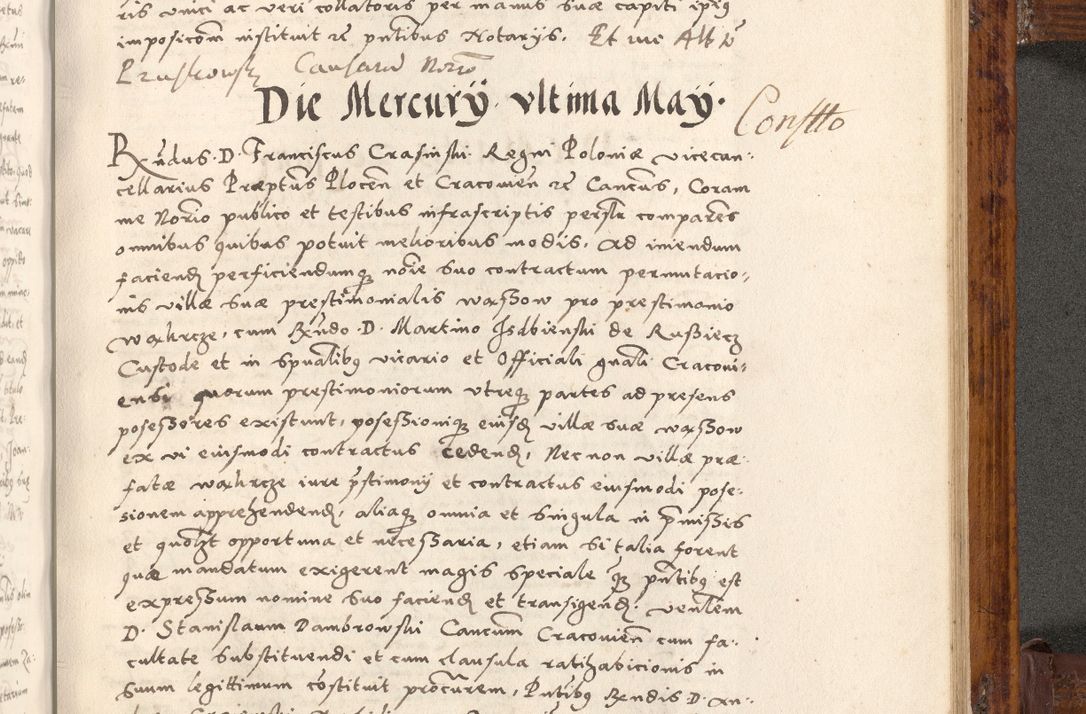 ris vnici ac veri collatoris per manus suæ capiti ipsius
imposicom instituit &c pntibus Notarijs. Et me Alb
Pruskowsky Causarum Norio
Die Mercurÿ vltima Maÿ.
Constto
Rndus D. Franciscus Crasinski Regni Poloniæ vicecan-
cellarius Præptus Plocen et Cracouien &c Cancus, Coram
me Norio publico et testibus infrascriptis persltr comparens
omnibus quibus potuit melioribus modis, ad iniendum
faciend perficiendumq noie suo contractum permutacio-
nis villæ suæ prestimonialis warßow pro prestimonio
wawrcze, cum Rndo D. Martino Isdbienski de Rußiecz
Custode et in spualibq vicario et Officiali gnali Cracoui-
ensi quorum prestimoniorum vtreq partes ad presens
poseßores existunt, poseßionq eiusd villæ suæ warßow
ex vi eiusmodi contractus cedend, Nec non villæ præ-
fatæ wawrcze iure pstimonij et contractus eiusmodi pose-
sionem apprehendend, aliaq omnia et singula in pmißis
et quolzt opportuna et neceßaria, etiam si talia forent
quæ mandatum exigerent magis speciale q pntibq est
expreßum nomine suo faciend et transigend. venlem
D. Stanislaum Dambrowski Cancum Cracouien cum fa-
cultate substituendi et cum clausula ratihabicionis in
suum legittimum cōstituit procurem, Pntibq Rndis D. An-